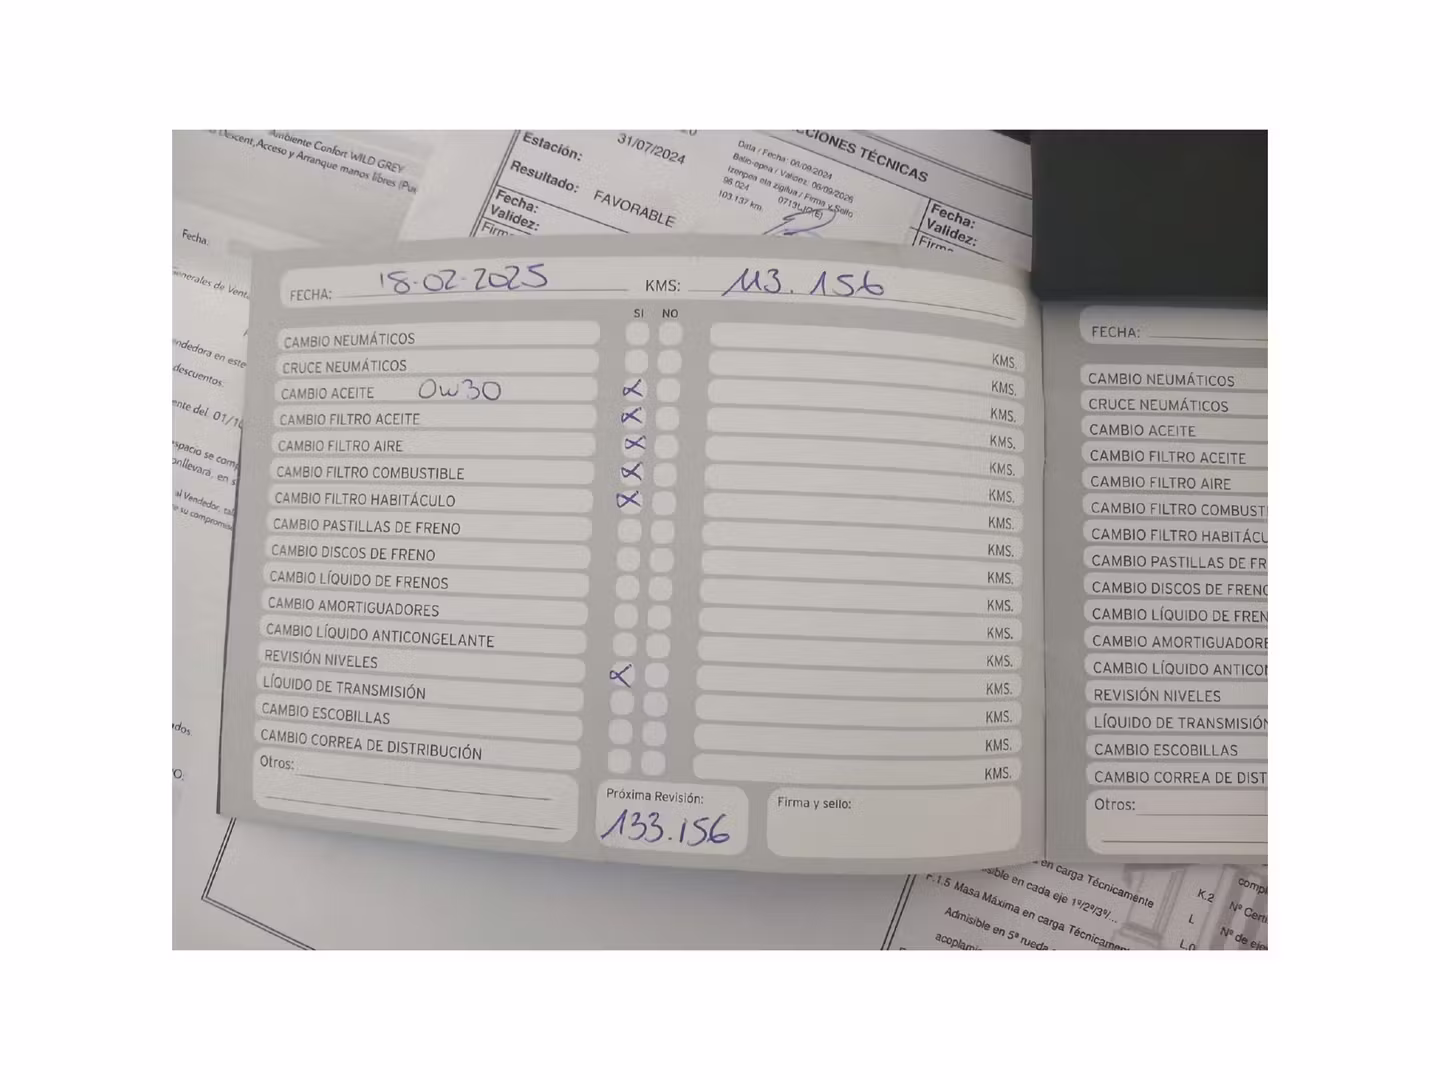 Ambiente Confort WILD GREY
Descent, Acceso y Arranque manos libres
Estación:
31/07/2024
Resultado: FAVORABLE
Fecha:
Validez:
CIONES TÉCNICAS
Data / Fecha: 06/09/2024
Balio-epea / Validez: 06/09/2026
Izenpea eta zigilua / Firma y Sello
103.137 km.
Fecha:
Validez:
Firm
Fecha:
enerales de Vent
ndedora en este
descuentos.
ente del 01/10
espacio se com
onllevará, en s
al Vendedor, tal
e su compromiso
FECHA: 18-02-2025 KMS: 113.156
SI NO
CAMBIO NEUMÁTICOS KMS.
CRUCE NEUMÁTICOS KMS.
CAMBIO ACEITE 0W30 X KMS.
CAMBIO FILTRO ACEITE X KMS.
CAMBIO FILTRO AIRE X KMS.
CAMBIO FILTRO COMBUSTIBLE X KMS.
CAMBIO FILTRO HABITÁCULO X KMS.
CAMBIO PASTILLAS DE FRENO KMS.
CAMBIO DISCOS DE FRENO KMS.
CAMBIO LÍQUIDO DE FRENOS KMS.
CAMBIO AMORTIGUADORES KMS.
CAMBIO LÍQUIDO ANTICONGELANTE KMS.
REVISIÓN NIVELES X KMS.
LÍQUIDO DE TRANSMISIÓN KMS.
CAMBIO ESCOBILLAS KMS.
CAMBIO CORREA DE DISTRIBUCIÓN KMS.
Otros:
Próxima Revisión:
133.156
Firma y sello:
FECHA:
CAMBIO NEUMÁTICOS
CRUCE NEUMÁTICOS
CAMBIO ACEITE
CAMBIO FILTRO ACEITE
CAMBIO FILTRO AIRE
CAMBIO FILTRO COMBUST
CAMBIO FILTRO HABITÁCU
CAMBIO PASTILLAS DE FR
CAMBIO DISCOS DE FRENO
CAMBIO LÍQUIDO DE FREN
CAMBIO AMORTIGUADORE
CAMBIO LÍQUIDO ANTICON
REVISIÓN NIVELES
LÍQUIDO DE TRANSMISIÓN
CAMBIO ESCOBILLAS
CAMBIO CORREA DE DIST
Otros:
en carga Técnicamente
sible en cada eje 1º/2º/3º/...
F.1.5 Masa Máxima en carga Técnicamen
Admisible en 5ª rueda
acoplami
K.2
L
L.0
compl
Nº Cert
Nº de eje